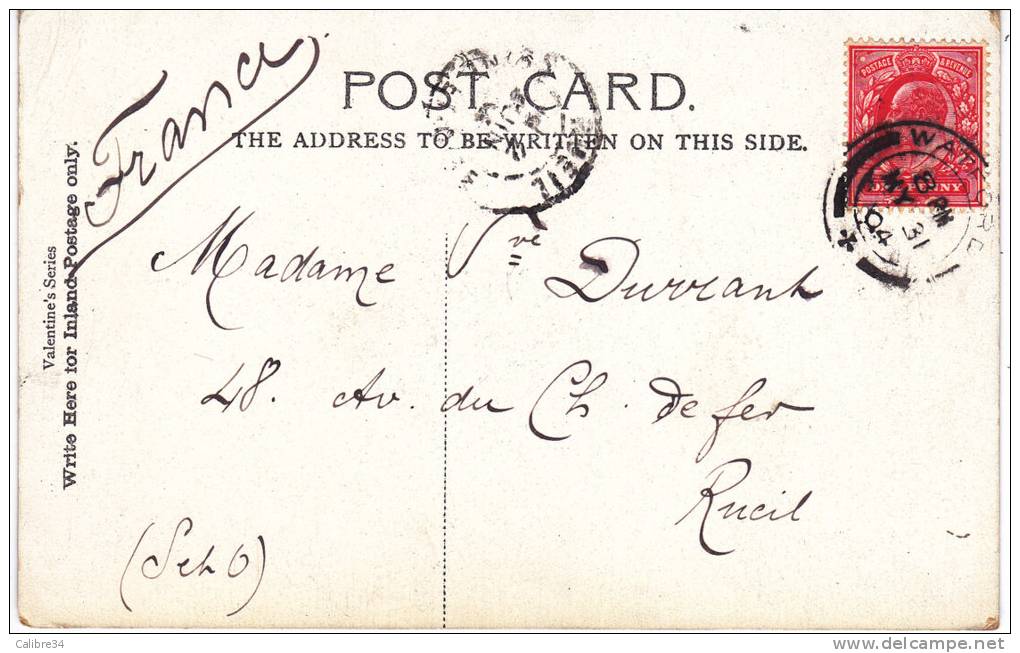 France
POST CARD.
THE ADDRESS TO BE WRITTEN ON THIS SIDE.
POSTAGE & REVENUE
ONE PENNY
8 PM
MY 31
04
Valentine's Series
Write Here for Inland Postage only.
Madame Vve Durrant
48. Av. du Ch. de fer
Rueil
(S et O)
Calibre34
delcampe.net